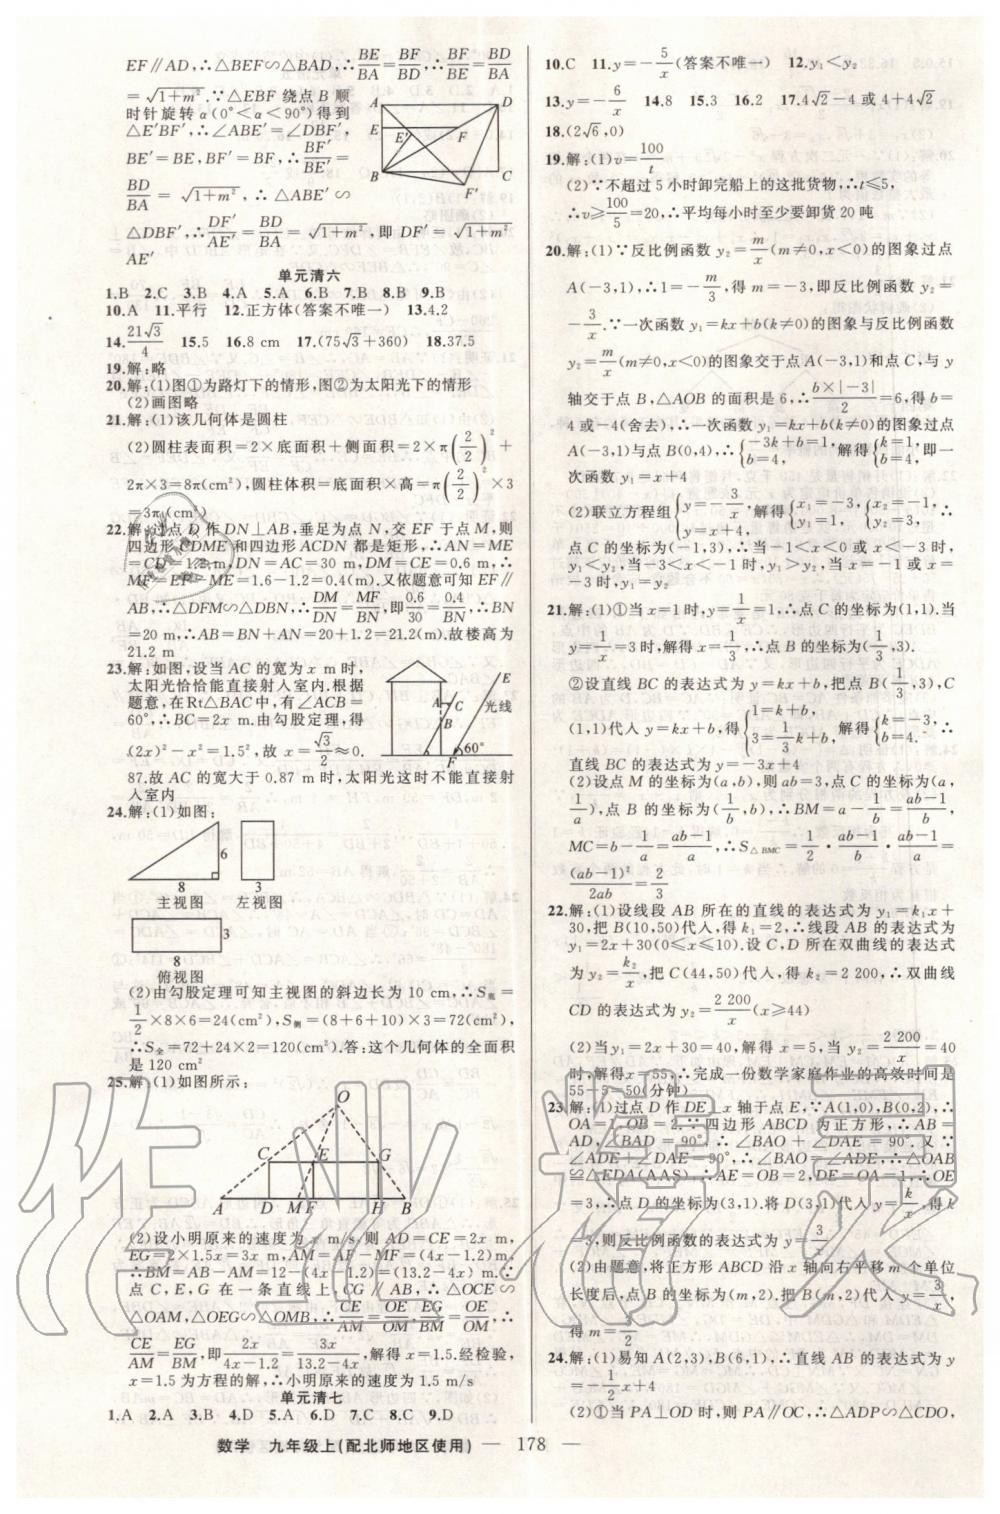 EF∥AD,∴△BEF∽△BAD,∴BE/BA=BF/BD,∴BF/BE=BD/BA
=√(1+m²).∵△EBF 绕点 B 顺
时针旋转 α(0°<α<90°)得到
△E′BF′,∴∠ABE′=∠DBF′,
BE′=BE,BF′=BF,∴BF′/BE′=
BD/BA=√(1+m²),∴△ABE′∽
△DBF′,∴DF′/AE′=BD/BA=√(1+m²),即 DF′=√(1+m²)
AE′
A D E E′ F B C F′
单元清六
1.B 2.C 3.B 4.A 5.A 6.B 7.B 8.B 9.B
10.A 11.平行 12.正方体(答案不唯一) 13.4.2
14.21√3/4 15.5 16.8 cm 17.(75√3+360) 18.37.5
19.解:略
20.解:(1)图①为路灯下的情形,图②为太阳光下的情形
(2)画图略
21.解:(1)该几何体是圆柱
(2)圆柱表面积=2×底面积+侧面积=2×π(2/2)²+
2π×3=8π(cm²),圆柱体积=底面积×高=π(2/2)²×3
=3π(cm³)
22.解:过点 D 作 DN⊥AB,垂足为点 N,交 EF 于点 M,则
四边形 CDME 和四边形 ACDN 都是矩形,∴AN=ME
=CD=1.2 m,DN=AC=30 m,DM=CE=0.6 m,∴
MF=EF-ME=1.6-1.2=0.4(m).又依题意可知 EF∥
AB,∴△DFM∽△DBN,∴DM/DN=MF/BN,即0.6/30=0.4/BN,∴BN
=20 m,∴AB=BN+AN=20+1.2=21.2(m).故楼高为
21.2 m
23.解:如图,设当 AC 的宽为 x m 时,
太阳光恰恰能直接射入室内.根据
题意,在Rt△BAC 中,有∠ACB=
60°,∴BC=2x m.由勾股定理,得
(2x)²-x²=1.5²,故 x=√3/2≈0.
87.故 AC 的宽大于 0.87 m 时,太阳光这时不能直接射
入室内
A C B E 光线 F 60°
24.解:(1)如图:
6 8 3
主视图 左视图
3
8
俯视图
(2)由勾股定理可知主视图的斜边长为 10 cm,∴S底=
1/2×8×6=24(cm²),S侧=(8+6+10)×3=72(cm²),
∴S全=72+24×2=120(cm²).答:这个几何体的全面积
是 120 cm²
25.解:(1)如图所示:
O
C E G
A D M F H B
(2)设小明原来的速度为 x m/s,则 AD=CE=2x m,
EG=2×1.5x=3x m,AM=AF-MF=(4x-1.2)m,
∴BM=AB-AM=12-(4x-1.2)=(13.2-4x)m.∵
点 C,E,G 在一条直线上,CG∥AB,∴△OCE∽
△OAM,△OEG∽△OMB,∴CE/AM=OE/OM,EG/BM=OE/OM,∴
CE/AM=EG/BM,即2x/(4x-1.2)=3x/(13.2-4x),解得 x=1.5.经检验,
x=1.5 为方程的解,∴小明原来的速度为 1.5 m/s
单元清七
1.A 2.A 3.B 4.D 5.A 6.D 7.C 8.C 9.D
10.C 11.y=-5/x(答案不唯一) 12.y₁<y₂
13.y=-6/x 14.8 15.3 16.2 17.4√2-4 或 4+4√2
18.(2√6,0)
19.解:(1)v=100/t
(2)∵不超过 5 小时卸完船上的这批货物,∴t≤5,
∴v≥100/5=20,∴平均每小时至少要卸货 20 吨
20.解:(1)∵反比例函数 y₂=m/x(m≠0,x<0)的图象过点
A(-3,1),∴1=m/-3,得 m=-3,即反比例函数 y₂=
-3/x.∵一次函数 y₁=kx+b(k≠0)的图象与反比例函数
y₂=m/x(m≠0,x<0)的图象交于点 A(-3,1)和点 C,与 y
轴交于点 B,△AOB 的面积是 6,∴b×|-3|/2=6,得 b=
4 或-4(舍去),∴一次函数 y₁=kx+b(k≠0)的图象过点
A(-3,1)与点 B(0,4),∴{-3k+b=1,b=4,解得{k=1,b=4,即一
次函数 y₁=x+4
(2)联立方程组{y=-3/x,y=x+4,解得{x₁=-3,y₁=1,{x₂=-1,y₂=3,∴
点 C 的坐标为(-1,3),∴当-1<x<0 或 x<-3 时,
y₁<y₂,当-3<x<-1 时,y₁>y₂,当 x=-1 或 x=
-3 时,y₁=y₂
21.解:(1)①当 x=1 时,y=1/x=1,∴点 C 的坐标为(1,1).当
y=1/x=3 时,解得 x=1/3,∴点 B 的坐标为(1/3,3).
②设直线 BC 的表达式为 y=kx+b,把点 B(1/3,3),C
(1,1)代入 y=kx+b,得{1=k+b,3=1/3k+b,解得{k=-3,b=4.∴
直线 BC 的表达式为 y=-3x+4
(2)设点 M 的坐标为(a,b),则 ab=3,点 C 的坐标为(a,
1/a),点 B 的坐标为(1/b,b),∴BM=a-1/b=(ab-1)/b,
MC=b-1/a=(ab-1)/a,∴S△BMC=1/2·(ab-1)/b·(ab-1)/a=
(ab-1)²/2ab=2/3
22.解:(1)设线段 AB 所在的直线的表达式为 y₁=k₁x+
30,把 B(10,50)代入,得 k₁=2,∴线段 AB 的表达式为
y₁=2x+30(0≤x≤10).设 C,D 所在双曲线的表达式
为 y₂=k₂/x,把 C(44,50)代入,得 k₂=2 200,∴双曲线
CD 的表达式为 y₂=2 200/x(x≥44)
(2)当 y₁=2x+30=40,解得 x=5,当 y₂=2 200/x=40
时,解得 x=55,∴完成一份数学家庭作业的高效时间是
55-5=50(分钟)
23.解:(1)过点 D 作 DE⊥x 轴于点 E,∵A(1,0),B(0,2),∴
OA=1,OB=2.∵四边形 ABCD 为正方形,∴AB=
AD,∠BAD=90°,∴∠BAO+∠DAE=90°.又∵
∠ADE+∠DAE=90°,∴∠BAO=∠ADE,∴△OAB
≌△EDA(AAS),∴AE=OB=2,DE=OA=1,∴OE
=3,∴点 D 的坐标为(3,1).将 D(3,1)代入 y=k/x,得 k
=3,则反比例函数的表达式为 y=3/x
(2)由题意,将正方形 ABCD 沿 x 轴向右平移 m 个单位
长度后,点 B 的坐标为(m,2).把 B(m,2)代入 y=3/x,
得 m=3/2
24.解:(1)易知 A(2,3),B(6,1),∴直线 AB 的表达式为 y
=-1/2x+4
(2)①当 PA⊥OD 时,则 PA∥OC,∴△ADP∽△CDO,
数学 九年级上(配北师地区使用) — 178 —
作业精灵